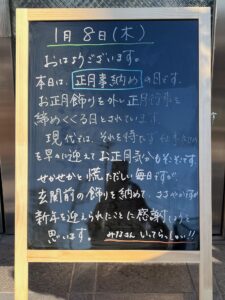 1月8日(木)
おはようございます。
本日は、正月事納めの日です。
お正月飾りを外し正月行事を
締めくくる日とされています。
現代では、それを待たず仕事
を早々に迎えてお正月気分もそこそこです。
せかせかと慌ただしい毎日ですが、
玄関前の飾りを納めて、ささやかですが
新年を迎えられたことに感謝しようと
思います。
みなさん いってらっしゃい!!